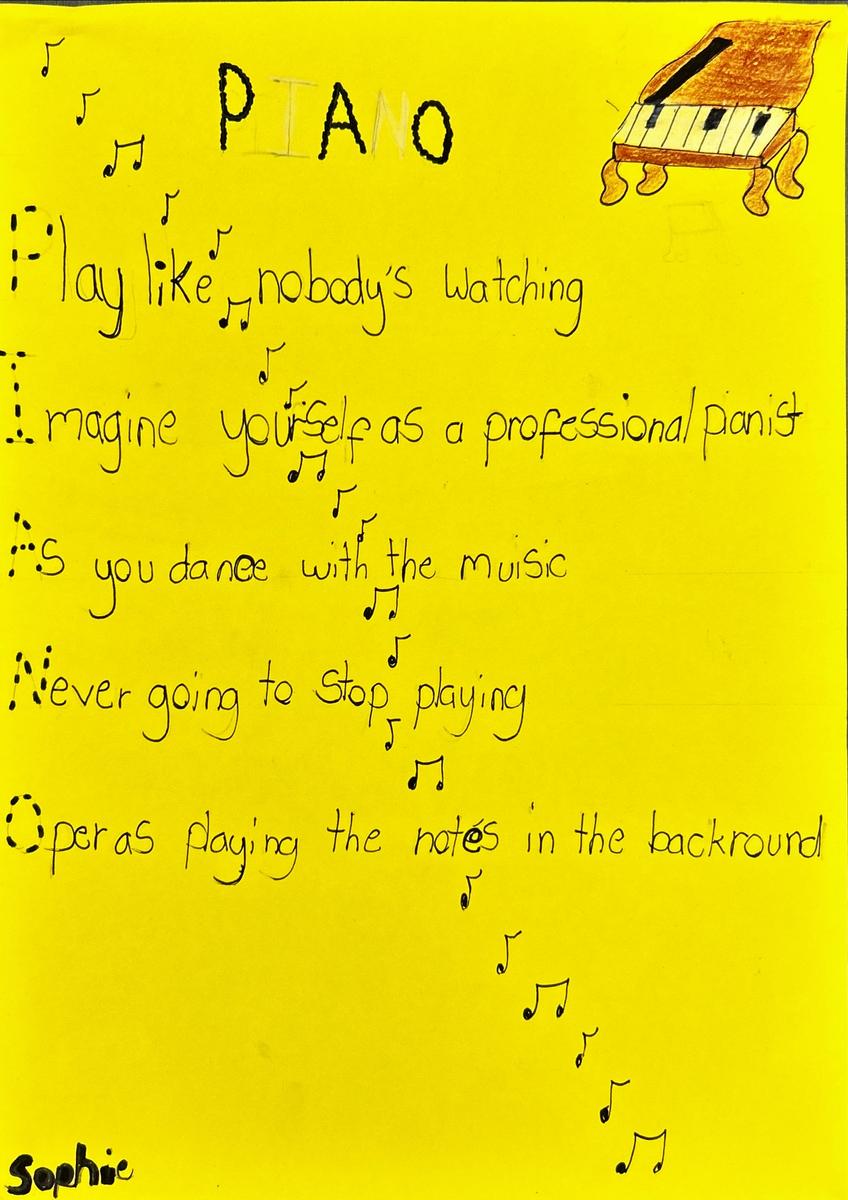 PIANO
Play like nobody's watching
Imagine yourself as a professional pianist
As you dance with the muisic
Never going to stop playing
Operas playing the notes in the backround
Sophie